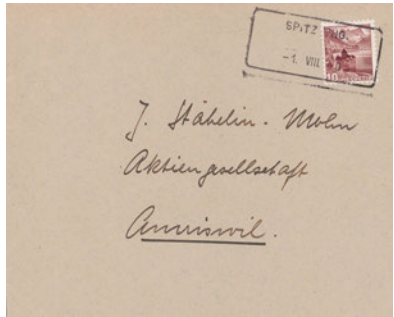 SPITZ
-1. VIII
10 HELVETIA
J. Stähelin - Mohn
Aktiengesellschaft
Amriswil.